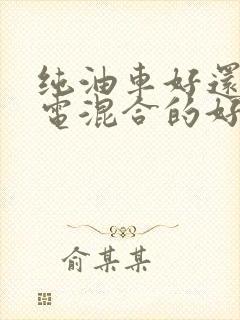 纯油車好還
電混合的好
俞某某